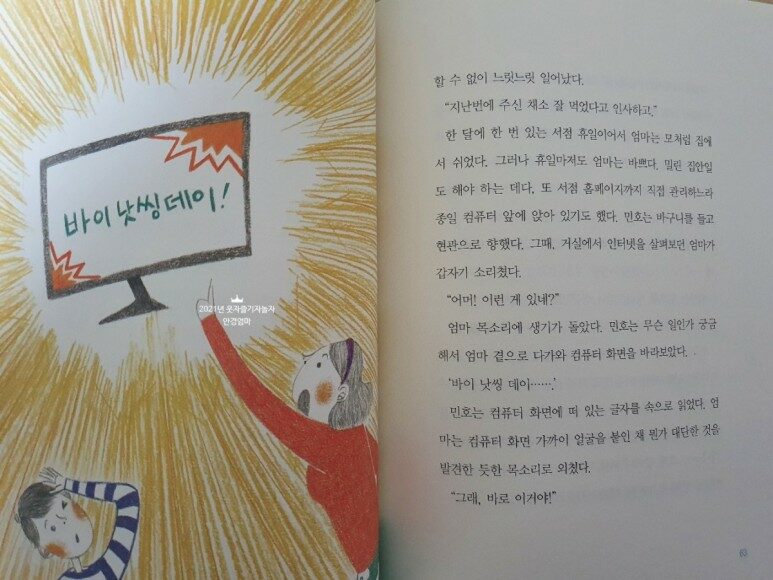 바이 낫씽 데이!
2021년 웃자즐기자놀자
안경엄마
할 수 없이 느릿느릿 일어났다.
“지난번에 주신 채소 잘 먹었다고 인사하고.”
한 달에 한 번 있는 서점 휴일이어서 엄마는 모처럼 집에
서 쉬었다. 그러나 휴일마저도 엄마는 바쁘다. 밀린 집안일
도 해야 하는 데다, 또 서점 홈페이지까지 직접 관리하느라
종일 컴퓨터 앞에 앉아 있기도 했다. 민호는 바구니를 들고
현관으로 향했다. 그때, 거실에서 인터넷을 살펴보던 엄마가
갑자기 소리쳤다.
“어머! 이런 게 있네?”
엄마 목소리에 생기가 돌았다. 민호는 무슨 일인가 궁금
해서 엄마 곁으로 다가와 컴퓨터 화면을 바라보았다.
‘바이 낫씽 데이…….’
민호는 컴퓨터 화면에 떠 있는 글자를 속으로 읽었다. 엄
마는 컴퓨터 화면 가까이 얼굴을 붙인 채 뭔가 대단한 것을
발견한 듯한 목소리로 외쳤다.
“그래, 바로 이거야!”